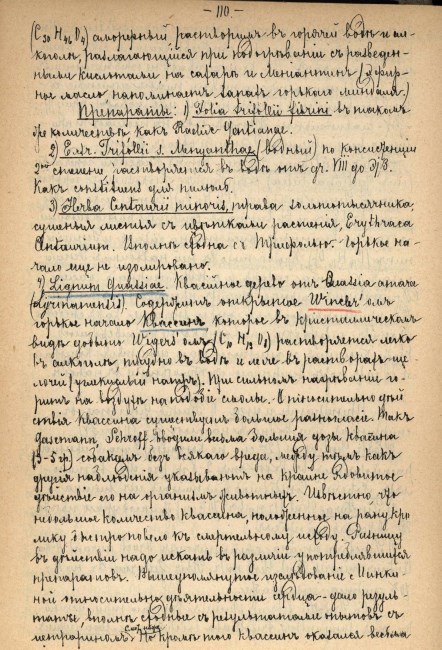 – 110. –
(C30 H46 O4) аморфный растворимъ въ горячей водѣ и ал-
коголѣ, разлагающійся при подогрѣваніи съ разведен-
ными кислотами, на сахаръ и Ментантинъ (эфир-
ное масло, напоминаетъ запахъ горькаго миндаля.)
Препараты: 1) Folia Trifolii fibrini въ такомъ
же количествѣ какъ Radix Gentianae.
2) Extr. Trifolii s. Menyanthae (водный) по консистенціи
2ой степени растворяется въ водѣ отъ gr. VIII до Dj3.
Какъ constituens для пилюль.
3) Hrba Centaurii minoris, трава золототысячника,
сушеныя листья съ цвѣтками растенія, Erythraea
Centaurium. Вполнѣ сходна съ Трифолью. Горькое на-
чало еще не изолировано.
4) Lignum Quassiae. Квассійное дерево отъ Quassia amara
Содержитъ открытое Wincler'омъ
горькое начало Квассинъ, которое въ кристаллическомъ
видѣ добыто Wigers'омъ (C10 H12 O3) растворяется легко
въ алкоголѣ, трудно въ водѣ и легче въ растворахъ ще-
лочей (углекислый натръ). При сильномъ нагрѣваніи го-
ритъ на воздухѣ на подобіе смолы. Относительно дѣй-
ствія квассина существуетъ большое разногласіе. Такъ
Husemann, Schroff, вводили весьма большія дозы квассина
собакамъ безъ всякаго вреда, между тѣмъ какъ
другія наблюденія указываютъ на крайне ядовитое
дѣйствіе его на организмъ животныхъ. Извѣстно, что
небольшое количество квассина, положенное на рану кро-
лику 2го привело къ смертельному исходу. Разницу
въ дѣйствіи надо искать въ различіи употреблявшихся
препаратовъ. Вышеупомянутое изслѣдованіе г. Чинки-
ной относительно дѣятельности сердца – дало резуль-
таты, вполнѣ сходные съ результатами опытовъ съ
цетрариномъ. Но кромѣ того квассинъ оказался весьма